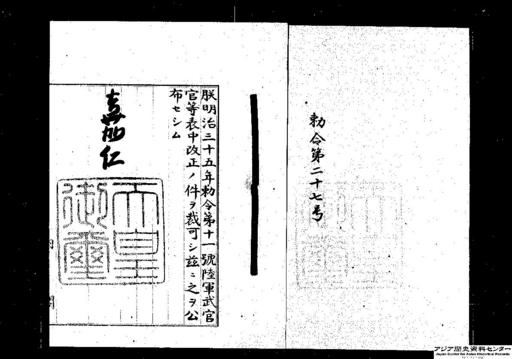 勅令第二十七号
朕明治三十五年勅令第十一號陸軍武官
官等表中改正ノ件ヲ裁可シ茲ニ之ヲ公
布セシム
嘉仁
天皇
御璽
内
閣
アジア歴史資料センター
Japan Center for Asian Historical Records